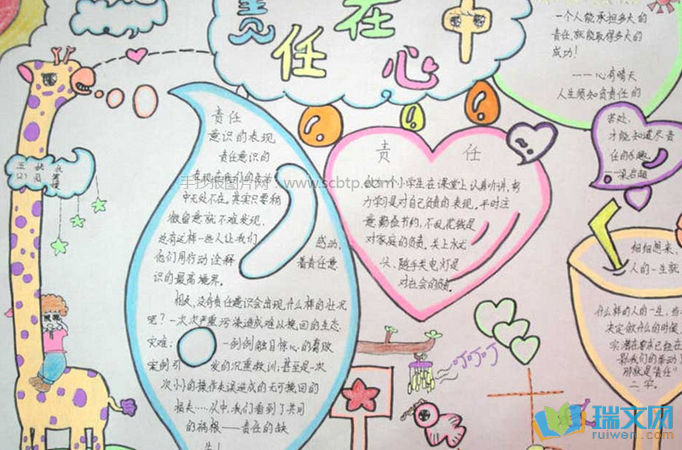 责任在心中
责任
意识的表现
责任意识的
表现在我们的生活
中无处不在。其实只要稍
微留意就不难发现,
总有这样一些人让我们 感动,
他们用行动诠释 着责任意
识的最高境界。
相反,没有责任意识会出现什么样的状况
呢?一次次严重污染造成难以挽回的生态
灾难; 一例例触目惊心的腐败
案例引 发的沉重教训;甚至是一次
次小的操作失误造成的无可挽回的
损失……从中,我们看到了共同
的祸根——责任的缺
失!
责 任
做为一个小学生在课堂上认真听讲,努
力学习是对自己负责的表现。平时注
意勤俭节约,不乱花钱是
对家庭的负责,关上水龙
头,随手关电灯是
对社会的负责。
一个人能承担多大的
责任,就能取得多大的
成功!
——心有晴天
人生须知负责任的
苦处,
才能知道尽责
任的乐趣。
——梁启超
细细想来,
人的一生就
什么样的人的一生,当
决定做什么的时候,
实潜在要求已经在
影响我们的行动了
那就是“责任”
二字。
叮叮叮
手抄报图片网:www.scbtp.com
瑞文网
ruiwen.com